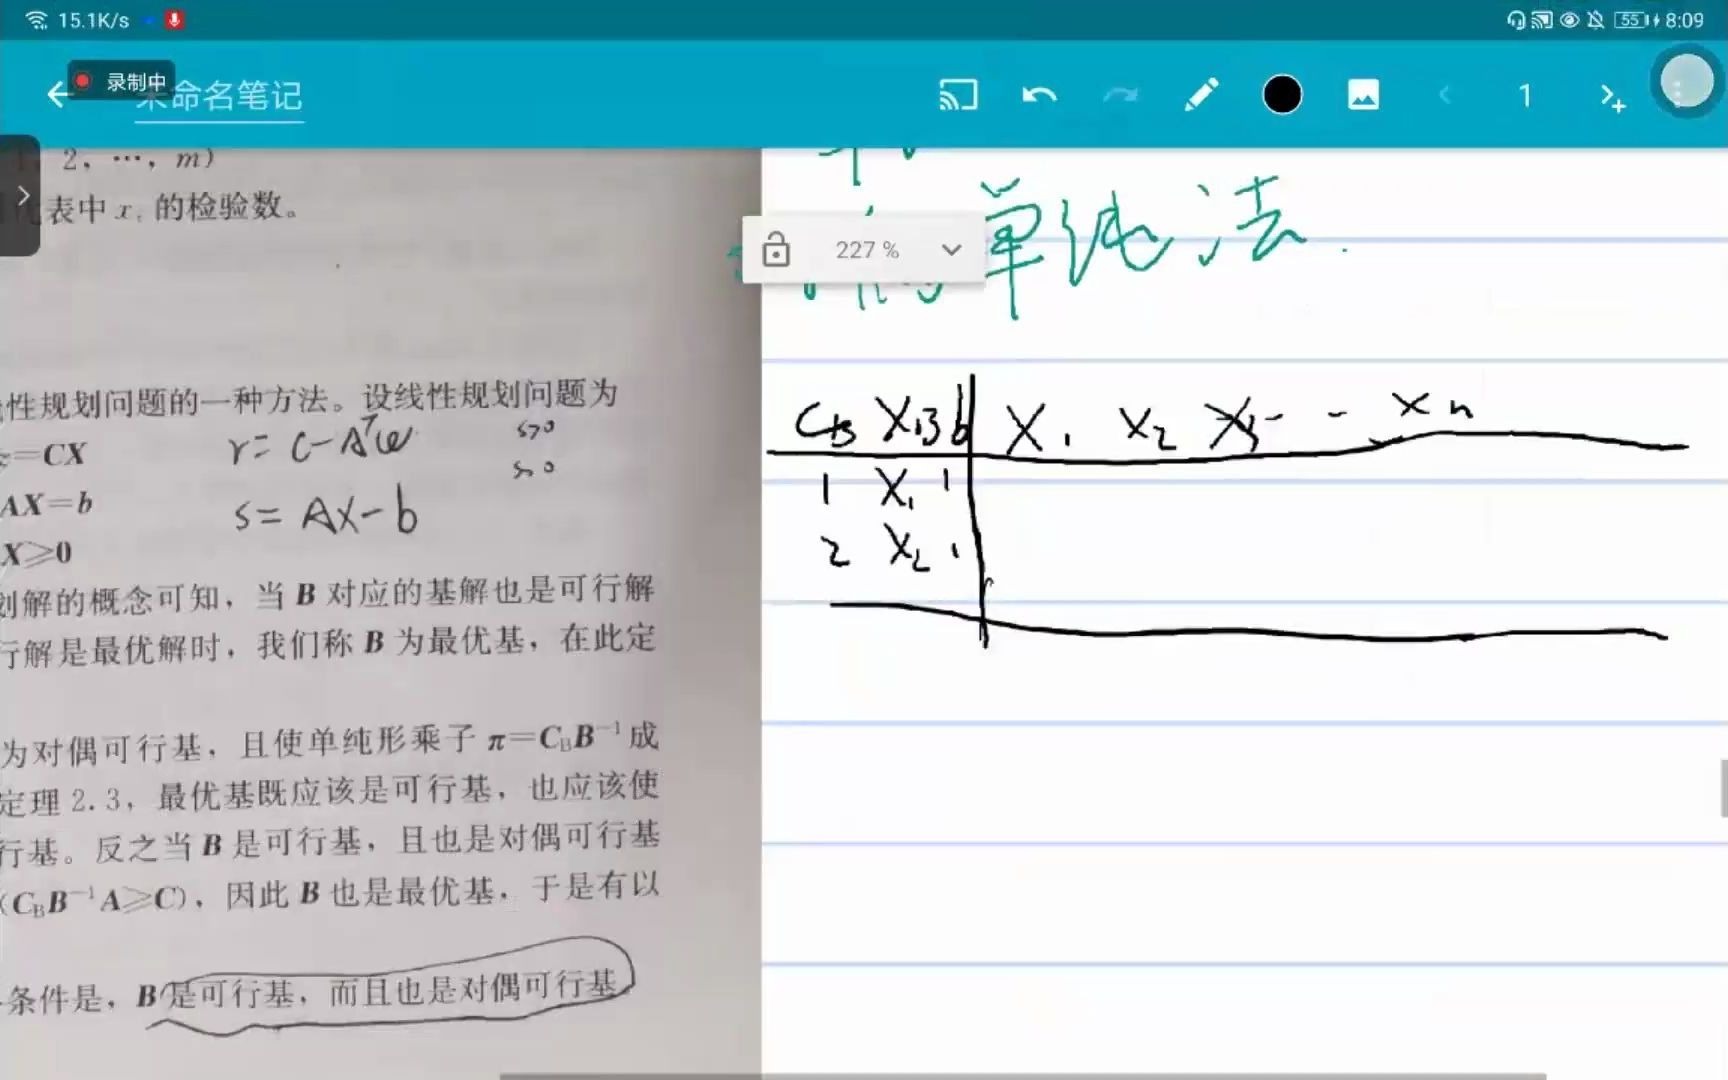 15.1K/s
55 8:09
录制中
未命名笔记
1
2, …, m)
表中 x 的检验数。
性规划问题的一种方法。设线性规划问题为
=CX
r= C-Aᵀω
s>0
s>0
AX=b
s= AX-b
X≥0
划解的概念可知，当 B 对应的基解也是可行解
行解是最优解时，我们称 B 为最优基，在此定
为对偶可行基，且使单纯形乘子 π=C_BB⁻¹ 成
定理 2.3，最优基既应该是可行基，也应该使
行基。反之当 B 是可行基，且也是对偶可行基
(C_BB⁻¹A≥C)，因此 B 也是最优基，于是有以
条件是，B 是可行基，而且也是对偶可行基
227 %
单纯法.
C_B X_B b X₁ X₂ X₃ - - Xn
1 X₁ 1
2 X₂ 1